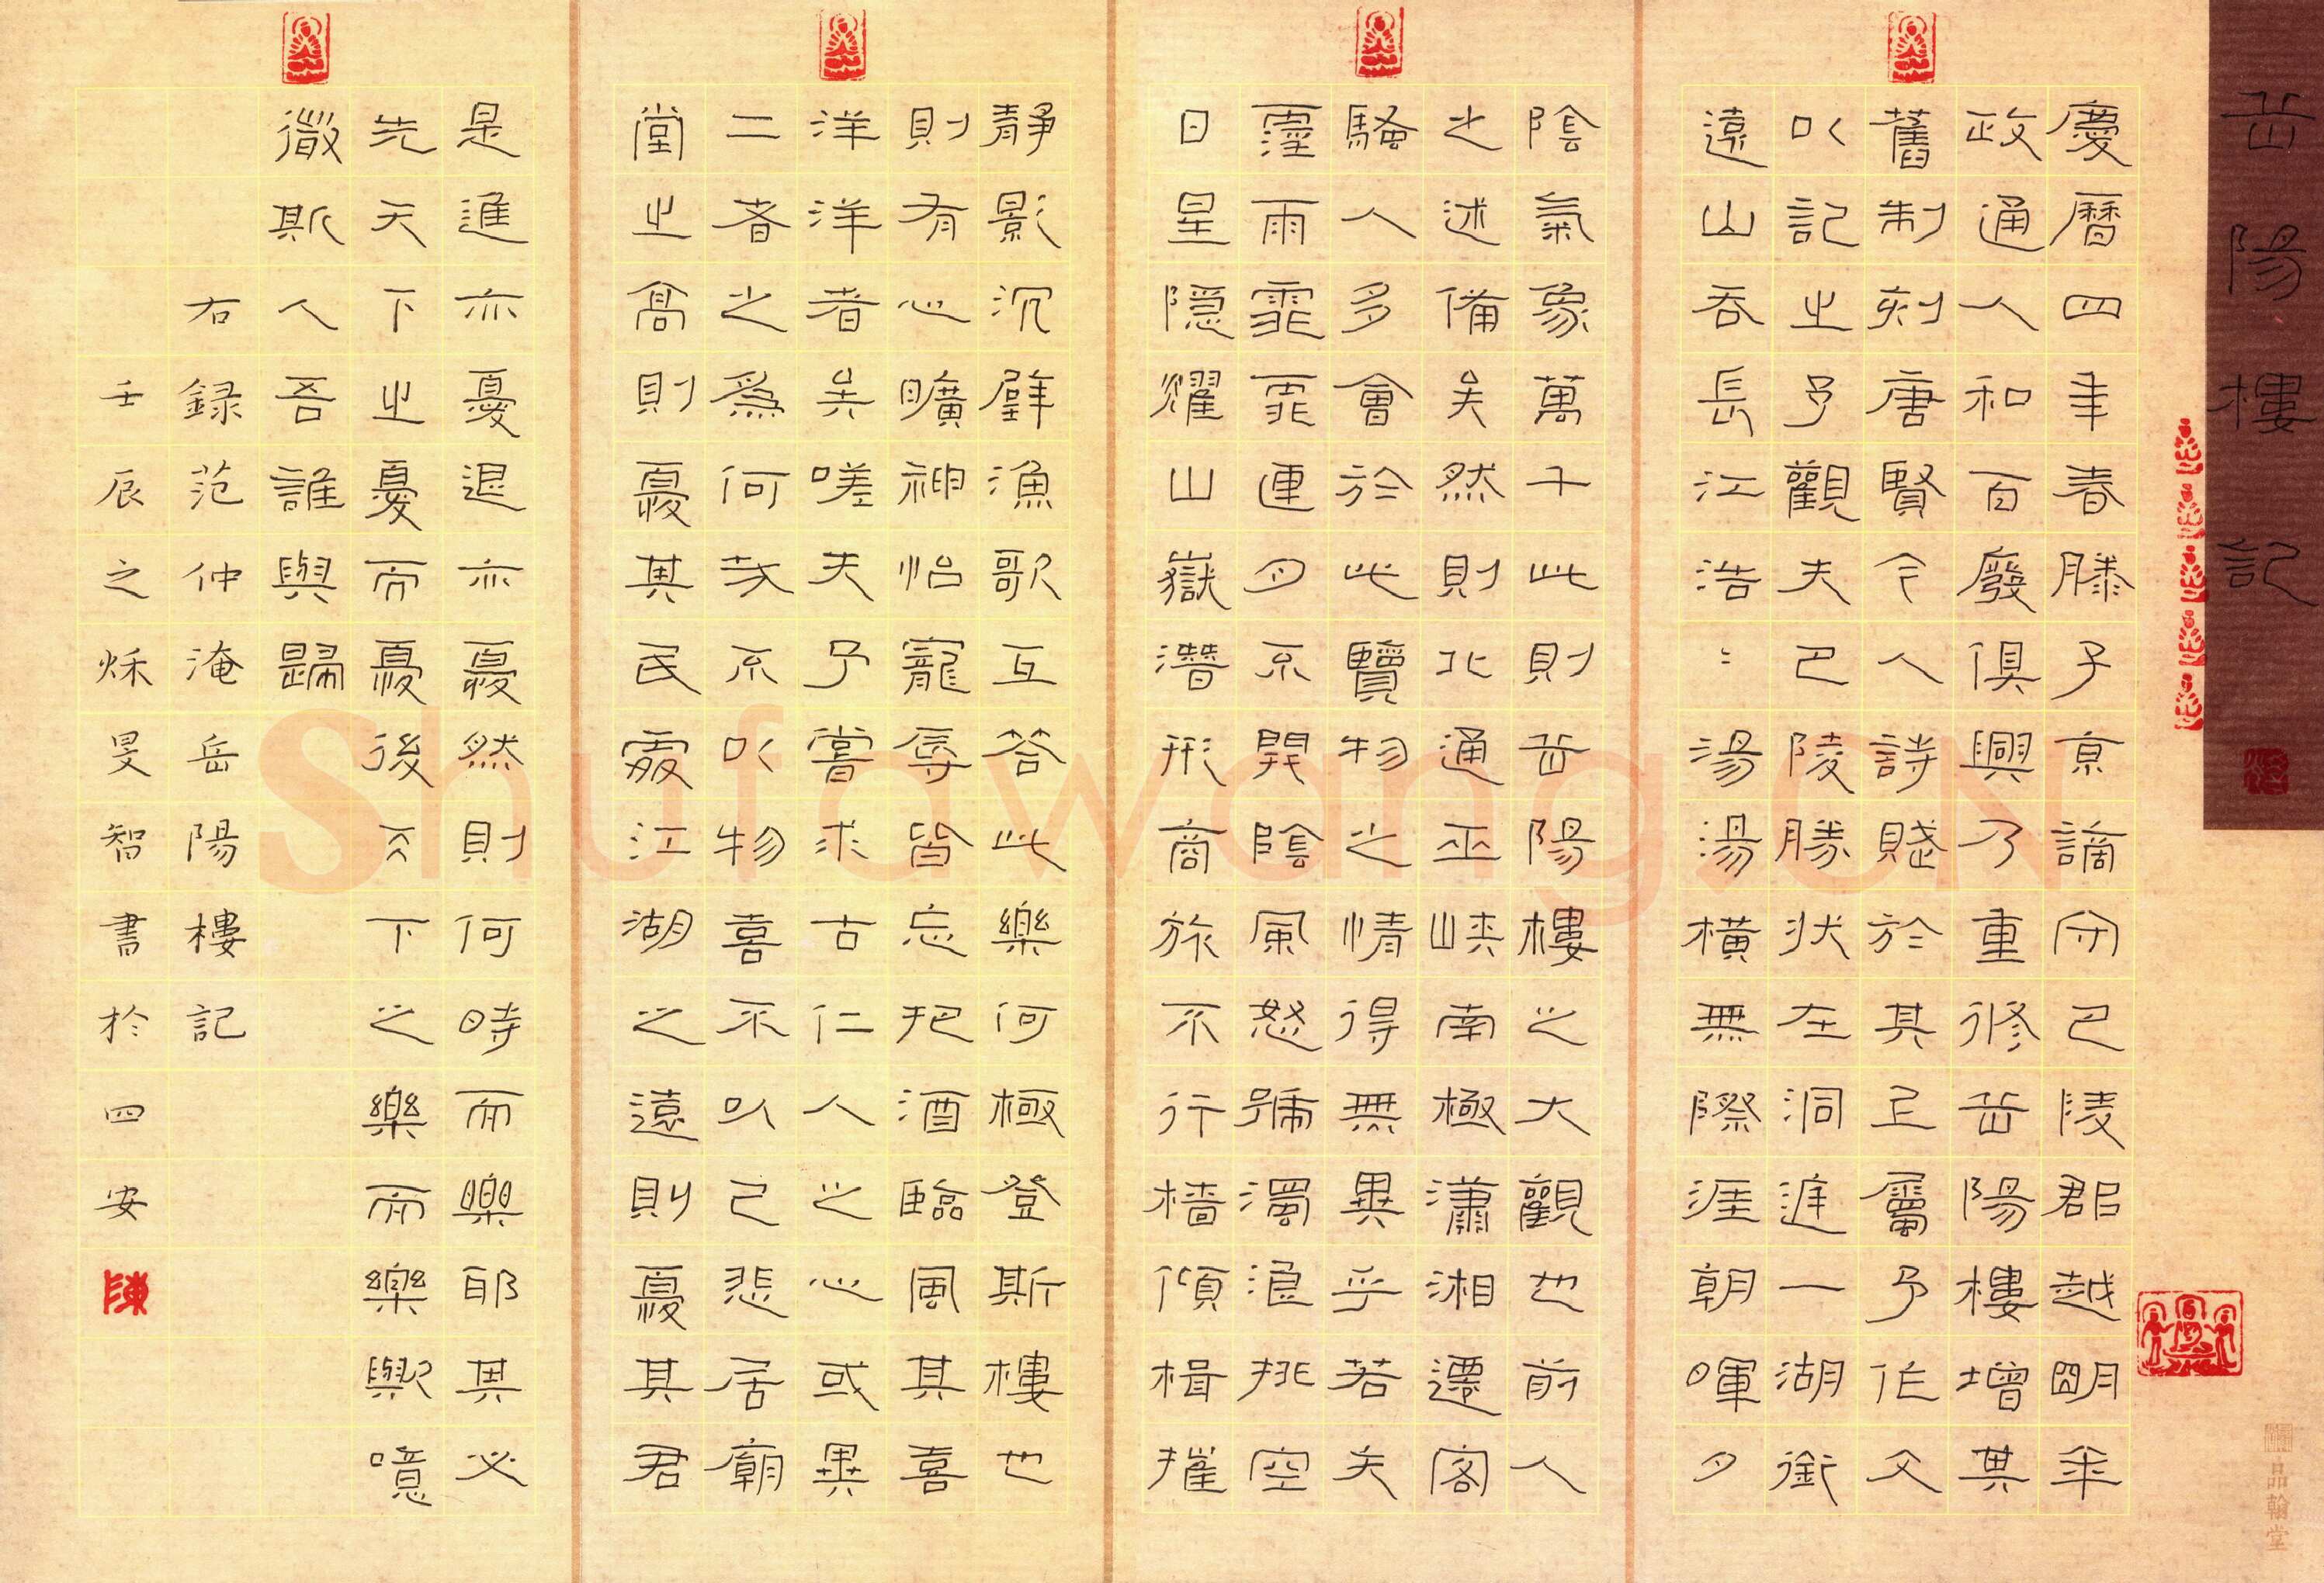 岳陽樓記
慶曆四年春滕子京謫守巴陵郡越明年
政通人和百廢俱興乃重修岳陽樓增其
舊制刻唐賢今人詩賦於其上屬予作文
以記之予觀夫巴陵勝狀在洞庭一湖銜
遠山吞長江浩〻湯湯橫無際涯朝暉夕
陰氣象萬千此則岳陽樓之大觀也前人
之述備矣然則北通巫峽南極瀟湘遷客
騷人多會於此覽物之情得無異乎若夫
霪雨霏霏連月不開陰風怒號濁浪排空
日星隱耀山嶽潛形商旅不行檣傾楫摧
靜影沉璧漁歌互答此樂何極登斯樓也
則有心曠神怡寵辱皆忘把酒臨風其喜
洋洋者矣嗟夫予嘗求古仁人之心或異
二者之為何哉不以物喜不以己悲居廟
堂之高則憂其民處江湖之遠則憂其君
是進亦憂退亦憂然則何時而樂耶其必
先天下之憂而憂後天下之樂而樂歟噫
微斯人吾誰與歸
右錄范仲淹岳陽樓記
壬辰之秋旻智書於四安
陳
品翰堂
Shufawang.CN